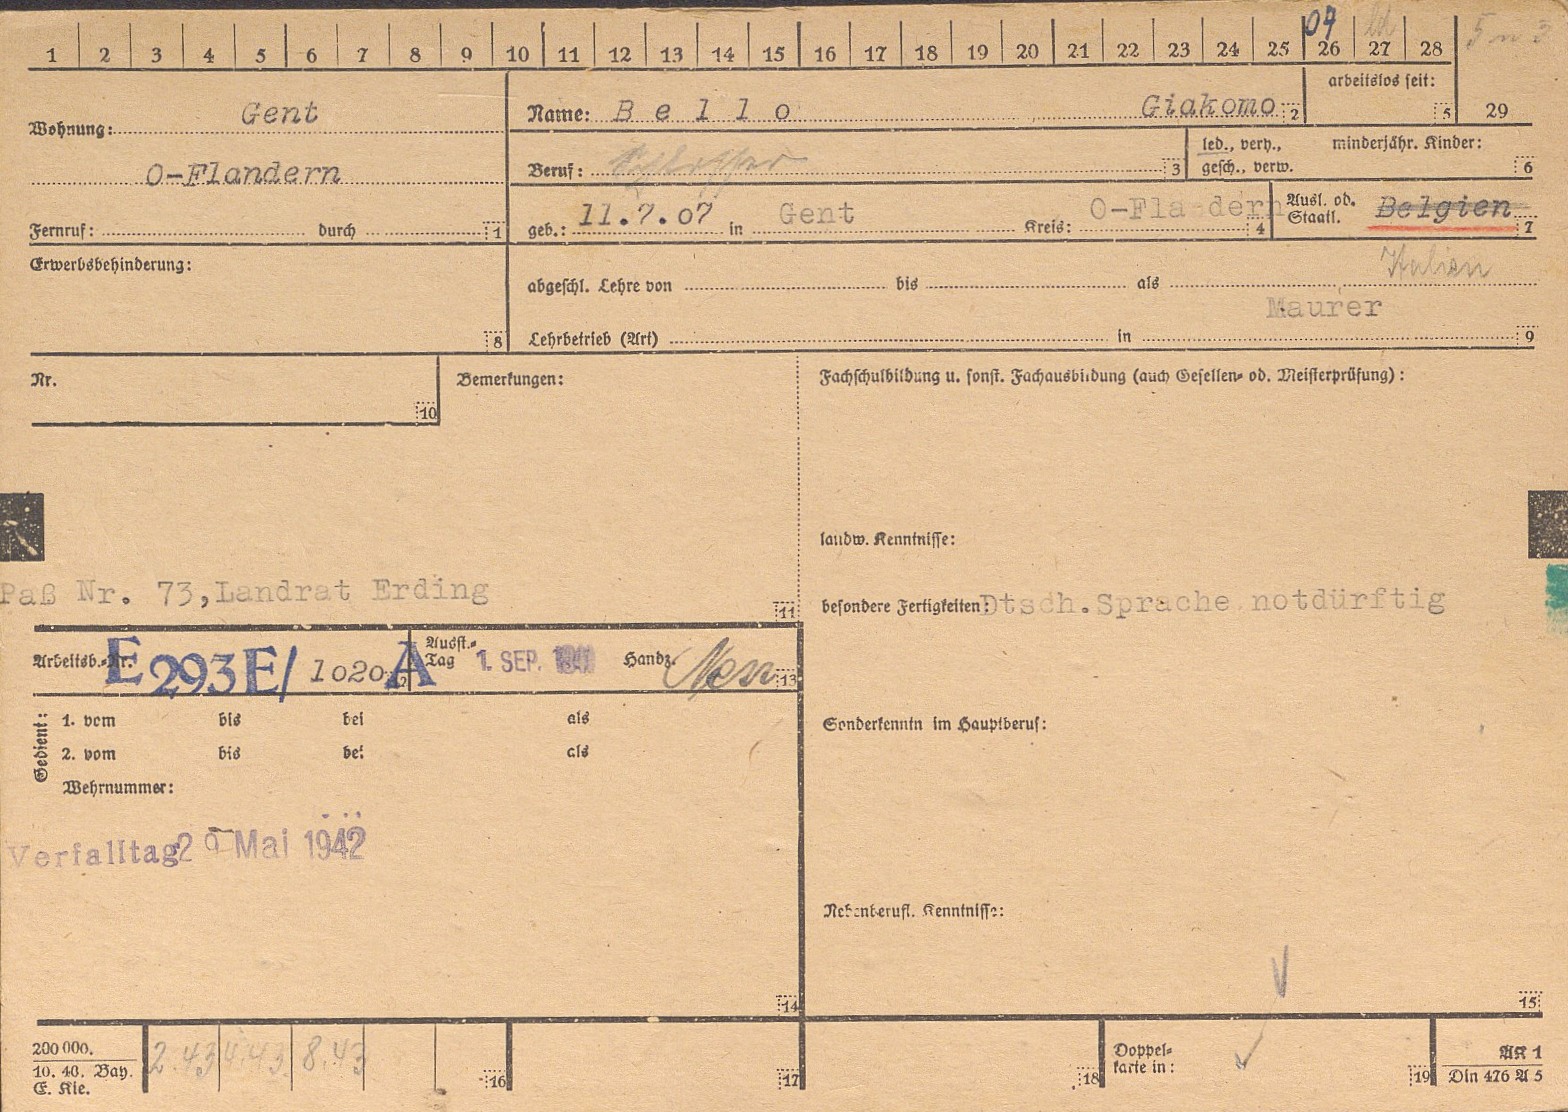 1 2 3 4 5 6 7 8 9 10 11 12 13 14 15 16 17 18 19 20 21 22 23 24 25 26 27 28
04
29
arbeitslos seit: 5
Wohnung: Gent
O-Flandern
Fernruf: durch 1
Name: B e l l o Giakomo 2
Beruf: 3
led., verh.,
gesch., verw.
minderjähr. Kinder: 6
geb.: 11.7.07 in Gent Kreis: O-Flandern 4
Ausl. od.
Staatl. Belgien 7
Italien
Erwerbsbehinderung: 8
abgeschl. Lehre von bis als
Maurer
Lehrbetrieb (Art) in 9
Nr. 10
Bemerkungen:
Paß Nr. 73, Landrat Erding 11
Fachschulbildung u. sonst. Fachausbildung (auch Gesellen- od. Meisterprüfung):
landw. Kenntnisse:
besondere Fertigkeiten: Dtsch. Sprache notdürftig
Arbeitsb.-Nr. E 293E/ 1020 A
Ausst.-
Tag 1. SEP. Handz. 13
Gedient:
1. vom bis bei als
2. vom bis bei als
Wehrnummer:
Verfalltag 29 Mai 1942
14
Sonderkenntn im Hauptberuf:
Nebenberufl. Kenntnisse:
15
200 000.
10. 40. Bay.
E. Kie.
2.43 4.43 8.43
16 17 18
Doppel-
karte in: 19
AK 1
Din 476 A 5